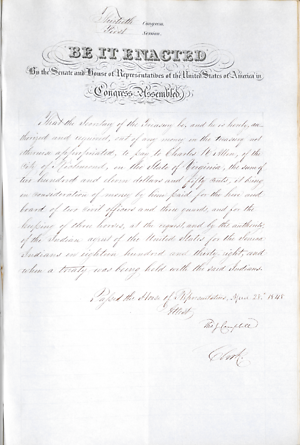 Thirtieth Congress
First Session
BE IT ENACTED
By the Senate and House of Representatives of the United States of America in
Congress Assembled
That the Secretary of the Treasury be, and he is hereby, au-
thorized and required, out of any money in the treasury not
otherwise appropriated, to pay to Charles W. Allen, of the
city of Richmond, in the State of Virginia, the sum of
two hundred and eleven dollars and fifty cents, it being
in consideration of money by him paid for the hire and
board of two civil officers and their guards, and for the
keeping of their horses, at the request, and by the authority
of the Indian agent of the United States for the
Indians in eighteen hundred and thirty eight, and
when a treaty was being held with the said Indians.
Passed the House of Representatives, 1848
Attest
Tho J Campbell
Clerk